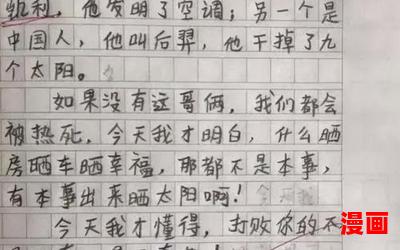 凯利，他发明了空调；另一个是
中国人，他叫后羿，他干掉了九
个太阳。
如果没有这哥俩，我们都会
被热死，今天我才明白，什么晒
房晒车晒幸福，那都不是本事，
有本事出来晒太阳啊！
今天我才懂得，打败你的不
漫画